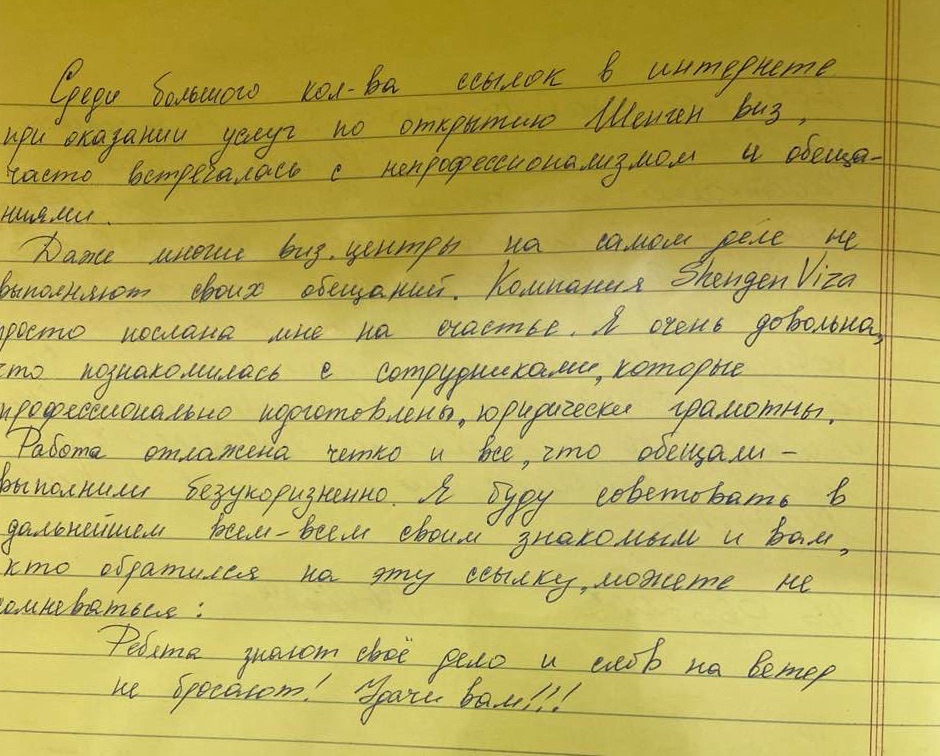 Среди большого кол-ва ссылок в интернете
при оказании услуг по открытию Шенген виз,
часто встречалась с непрофессионализмом и обеща-
ниями.
Даже многие виз.центры на самом деле не
выполняют своих обещаний. Компания Shengen Viza
просто послана мне на счастье. Я очень довольна,
что познакомилась с сотрудниками, которые
профессионально подготовлены, юридически грамотны.
Работа отлажена четко и все, что обещали –
выполнили безукоризненно. Я буду советовать в
дальнейшем всем-всем своим знакомым и вам,
кто обратился на эту ссылку, можете не
сомневаться:
Ребята знают своё дело и слов на ветер
не бросают! Удачи вам!!!